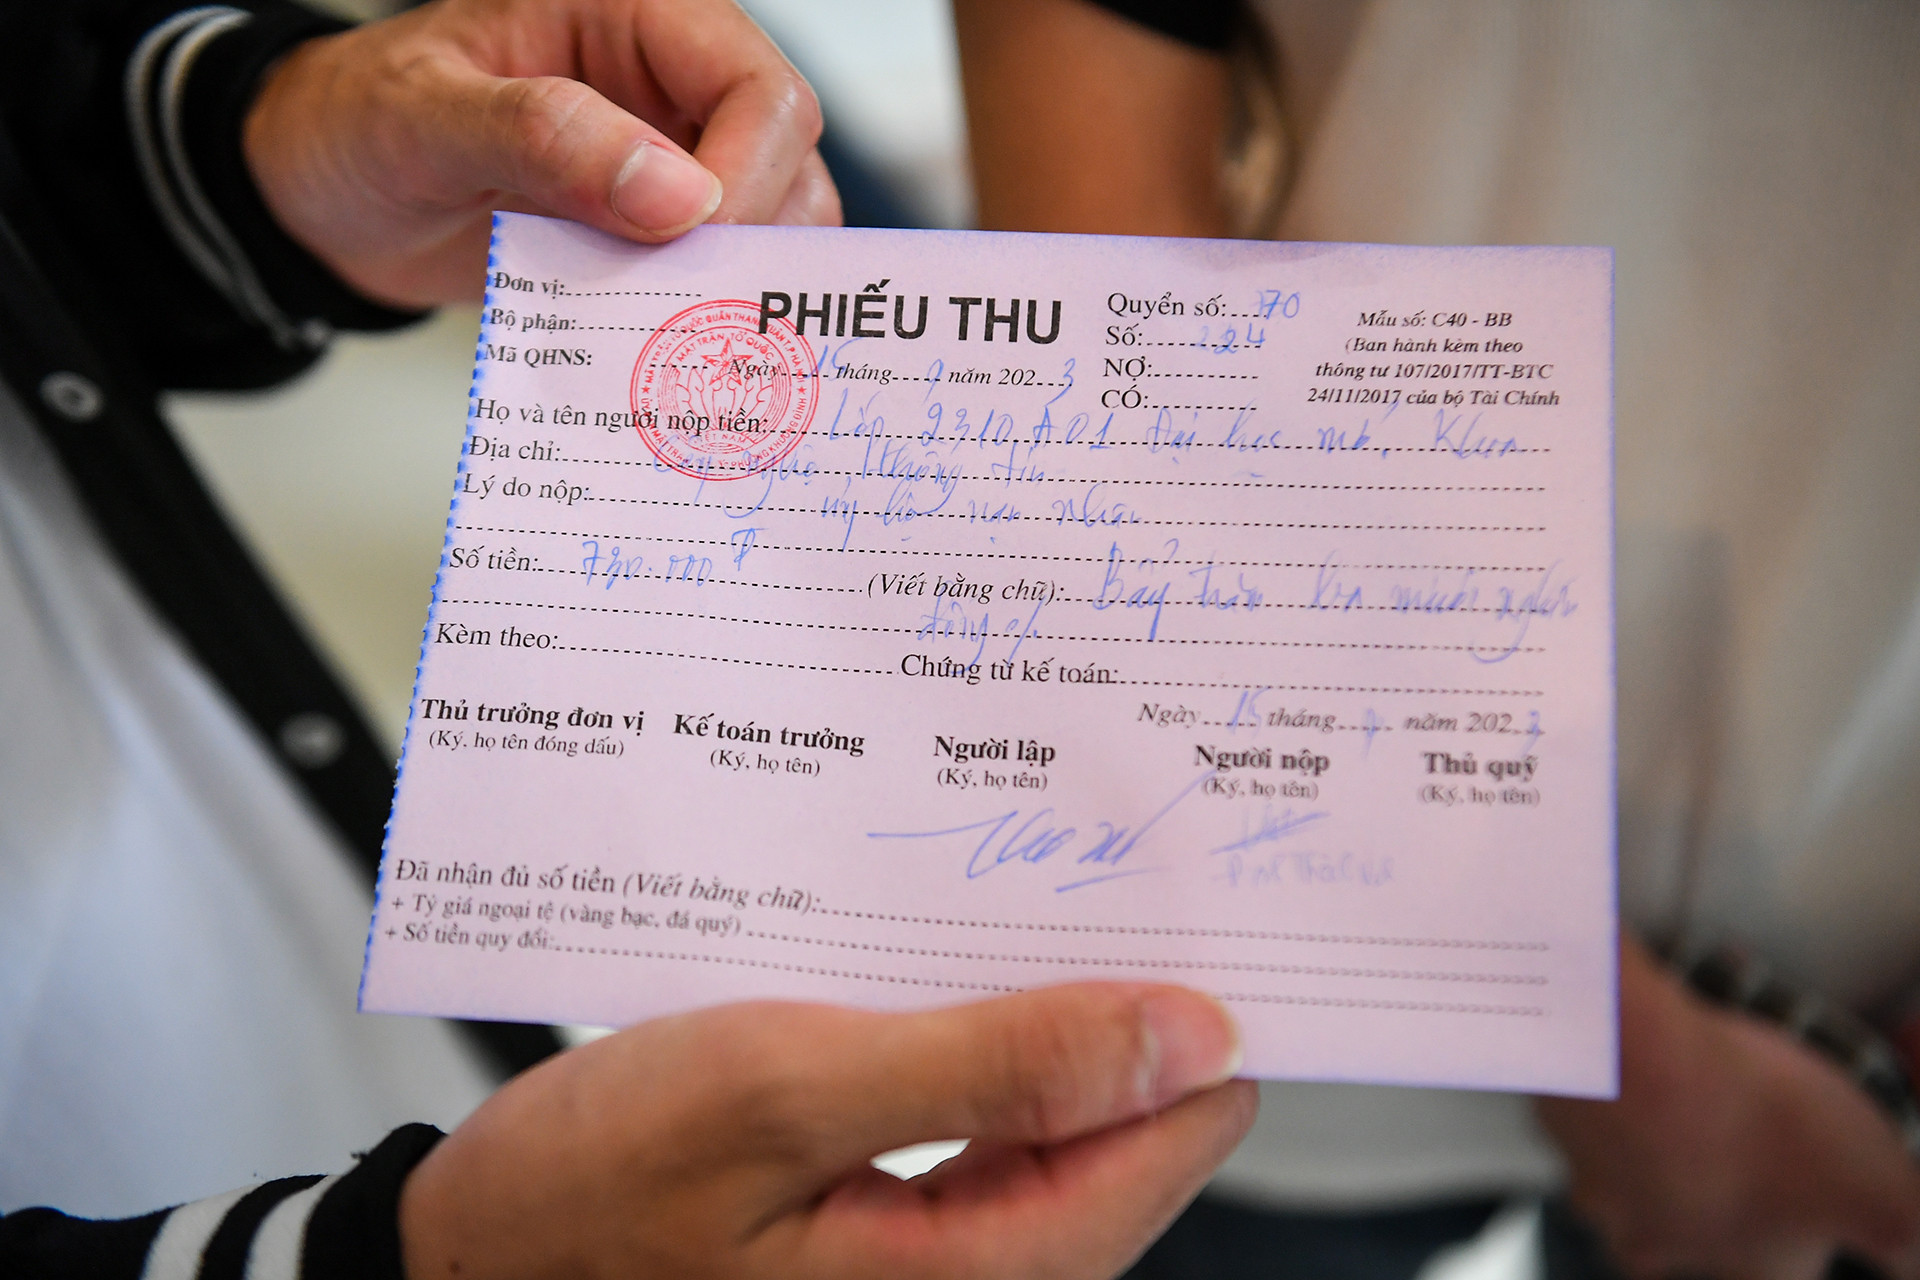 PHIẾU THU
Đơn vị:
Bộ phận:
Mã QHNS:
Ngày 15 tháng 9 năm 2023
Quyển số: 170
Số: 224
NỢ:
CÓ:
Mẫu số: C40 - BB
(Ban hành kèm theo
thông tư 107/2017/TT-BTC
24/11/2017 của bộ Tài Chính
Họ và tên người nộp tiền: Lớp 2310A01 Đại học mở, Khoa
Địa chỉ: Công nghệ thông tin
Lý do nộp: ủng hộ nạn nhân
Số tiền: 730.000đ (Viết bằng chữ): Bảy trăm ba mươi nghìn
đồng
Kèm theo: Chứng từ kế toán:
Ngày 15 tháng 9 năm 2023
Thủ trưởng đơn vị Kế toán trưởng Người lập Người nộp Thủ quỹ
(Ký, họ tên đóng dấu) (Ký, họ tên) (Ký, họ tên) (Ký, họ tên) (Ký, họ tên)
Đã nhận đủ số tiền (Viết bằng chữ):
+ Tỷ giá ngoại tệ (vàng bạc, đá quý)
+ Số tiền quy đổi: